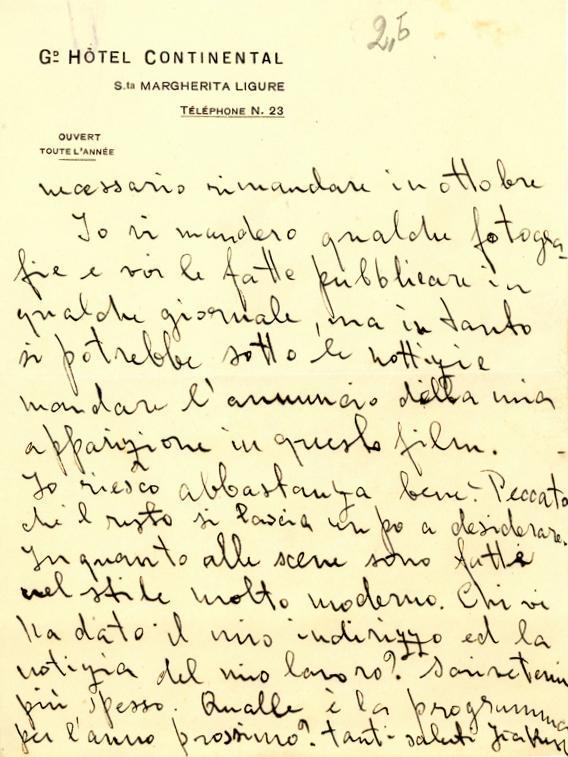 2,5
Gd HÔTEL CONTINENTAL
S.ta MARGHERITA LIGURE
TÉLÉPHONE N. 23
OUVERT
TOUTE L'ANNÉE
necessario rimandare in ottobre
Io vi mandero qualche fotogra-
fie e voi le fatte pubblicare in
qualche giornale, ma in tanto
si potrebbe sotto le nottizie
mandare l'annuncio della mia
apparizione in questo film.
Io riesco abbastanza bene. Peccato
che l resto si lascia un po a desiderare.
In quanto alle scene sono fatte
nel stile molto moderno. Chi vi
ha dato il mio indirizzo ed la
notizia del mio lavoro?
più spesso. Qualle è la programma
per l'anno prossimo? tanti saluti